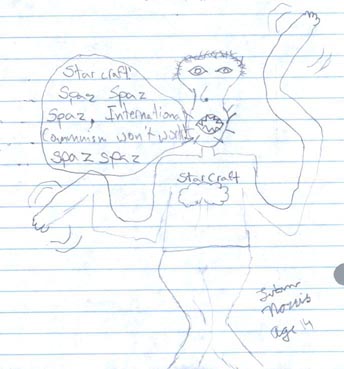 Starcraft
Spaz Spaz
Spaz, International
Communism won't work
Spaz spaz
StarCraft
Norris
age 14